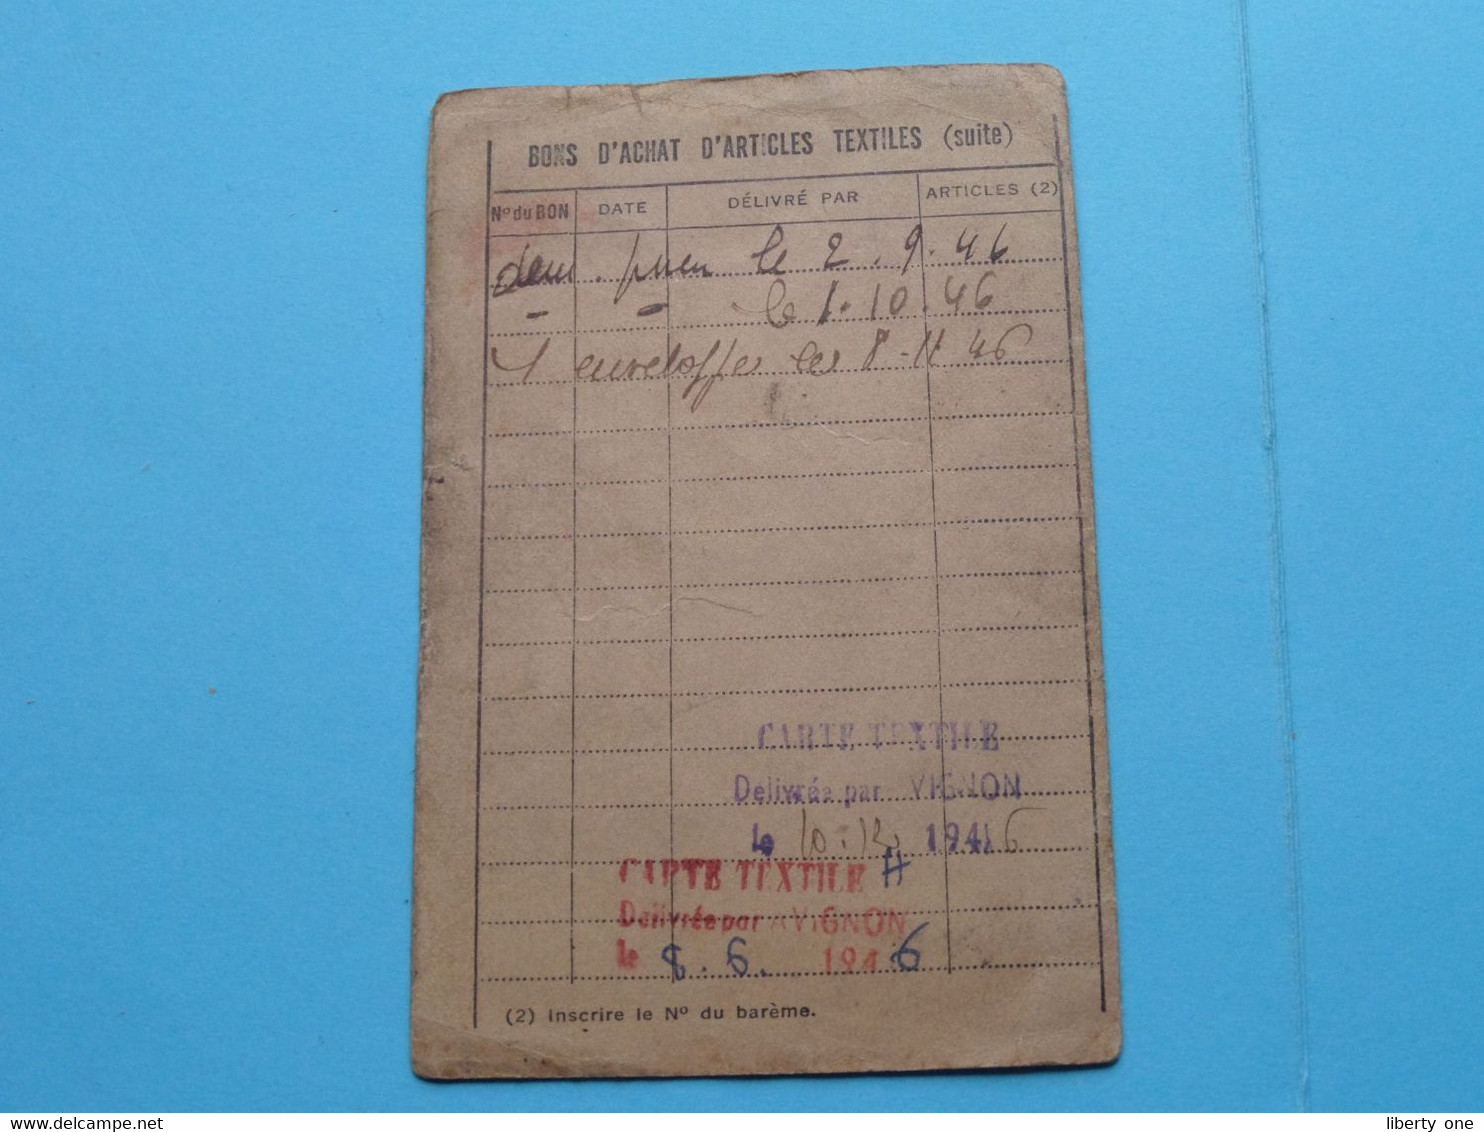 BONS D'ACHAT D'ARTICLES TEXTILES (suite)
Nº du BON DATE DÉLIVRÉ PAR ARTICLES (2)
dem. pneu le 2.9.46
- - le 1.10.46
1 enveloppe le 8-11 46
CARTE TEXTILE
Delivrée par AVIGNON
le 10.12 1946
CARTE TEXTILE H
Delivrée par AVIGNON
le 8.6. 1946
(2) Inscrire le Nº du barème.
www.delcampe.net
liberty one